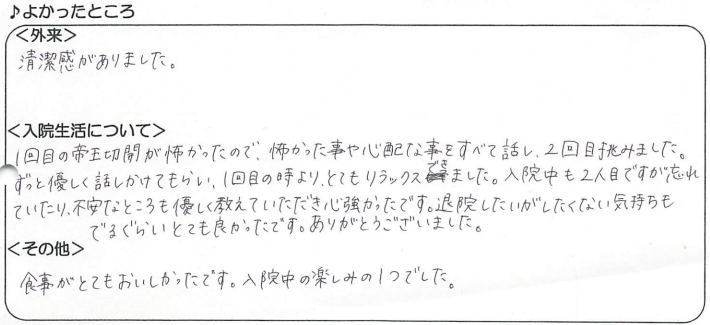 ♪よかったところ
＜外来＞
清潔感がありました。
＜入院生活について＞
1回目の帝王切開が怖かったので、怖かった事や心配な事をすべて話し、2回目挑みました。
ずっと優しく話しかけてもらい、1回目の時より、とてもリラックスできました。入院中も2人目ですが忘れ
ていたり、不安なところも優しく教えていただき心強かったです。退院したいがしたくない気持ちも
でるぐらいとても良かったです。ありがとうございました。
＜その他＞
食事がとてもおいしかったです。入院中の楽しみの1つでした。